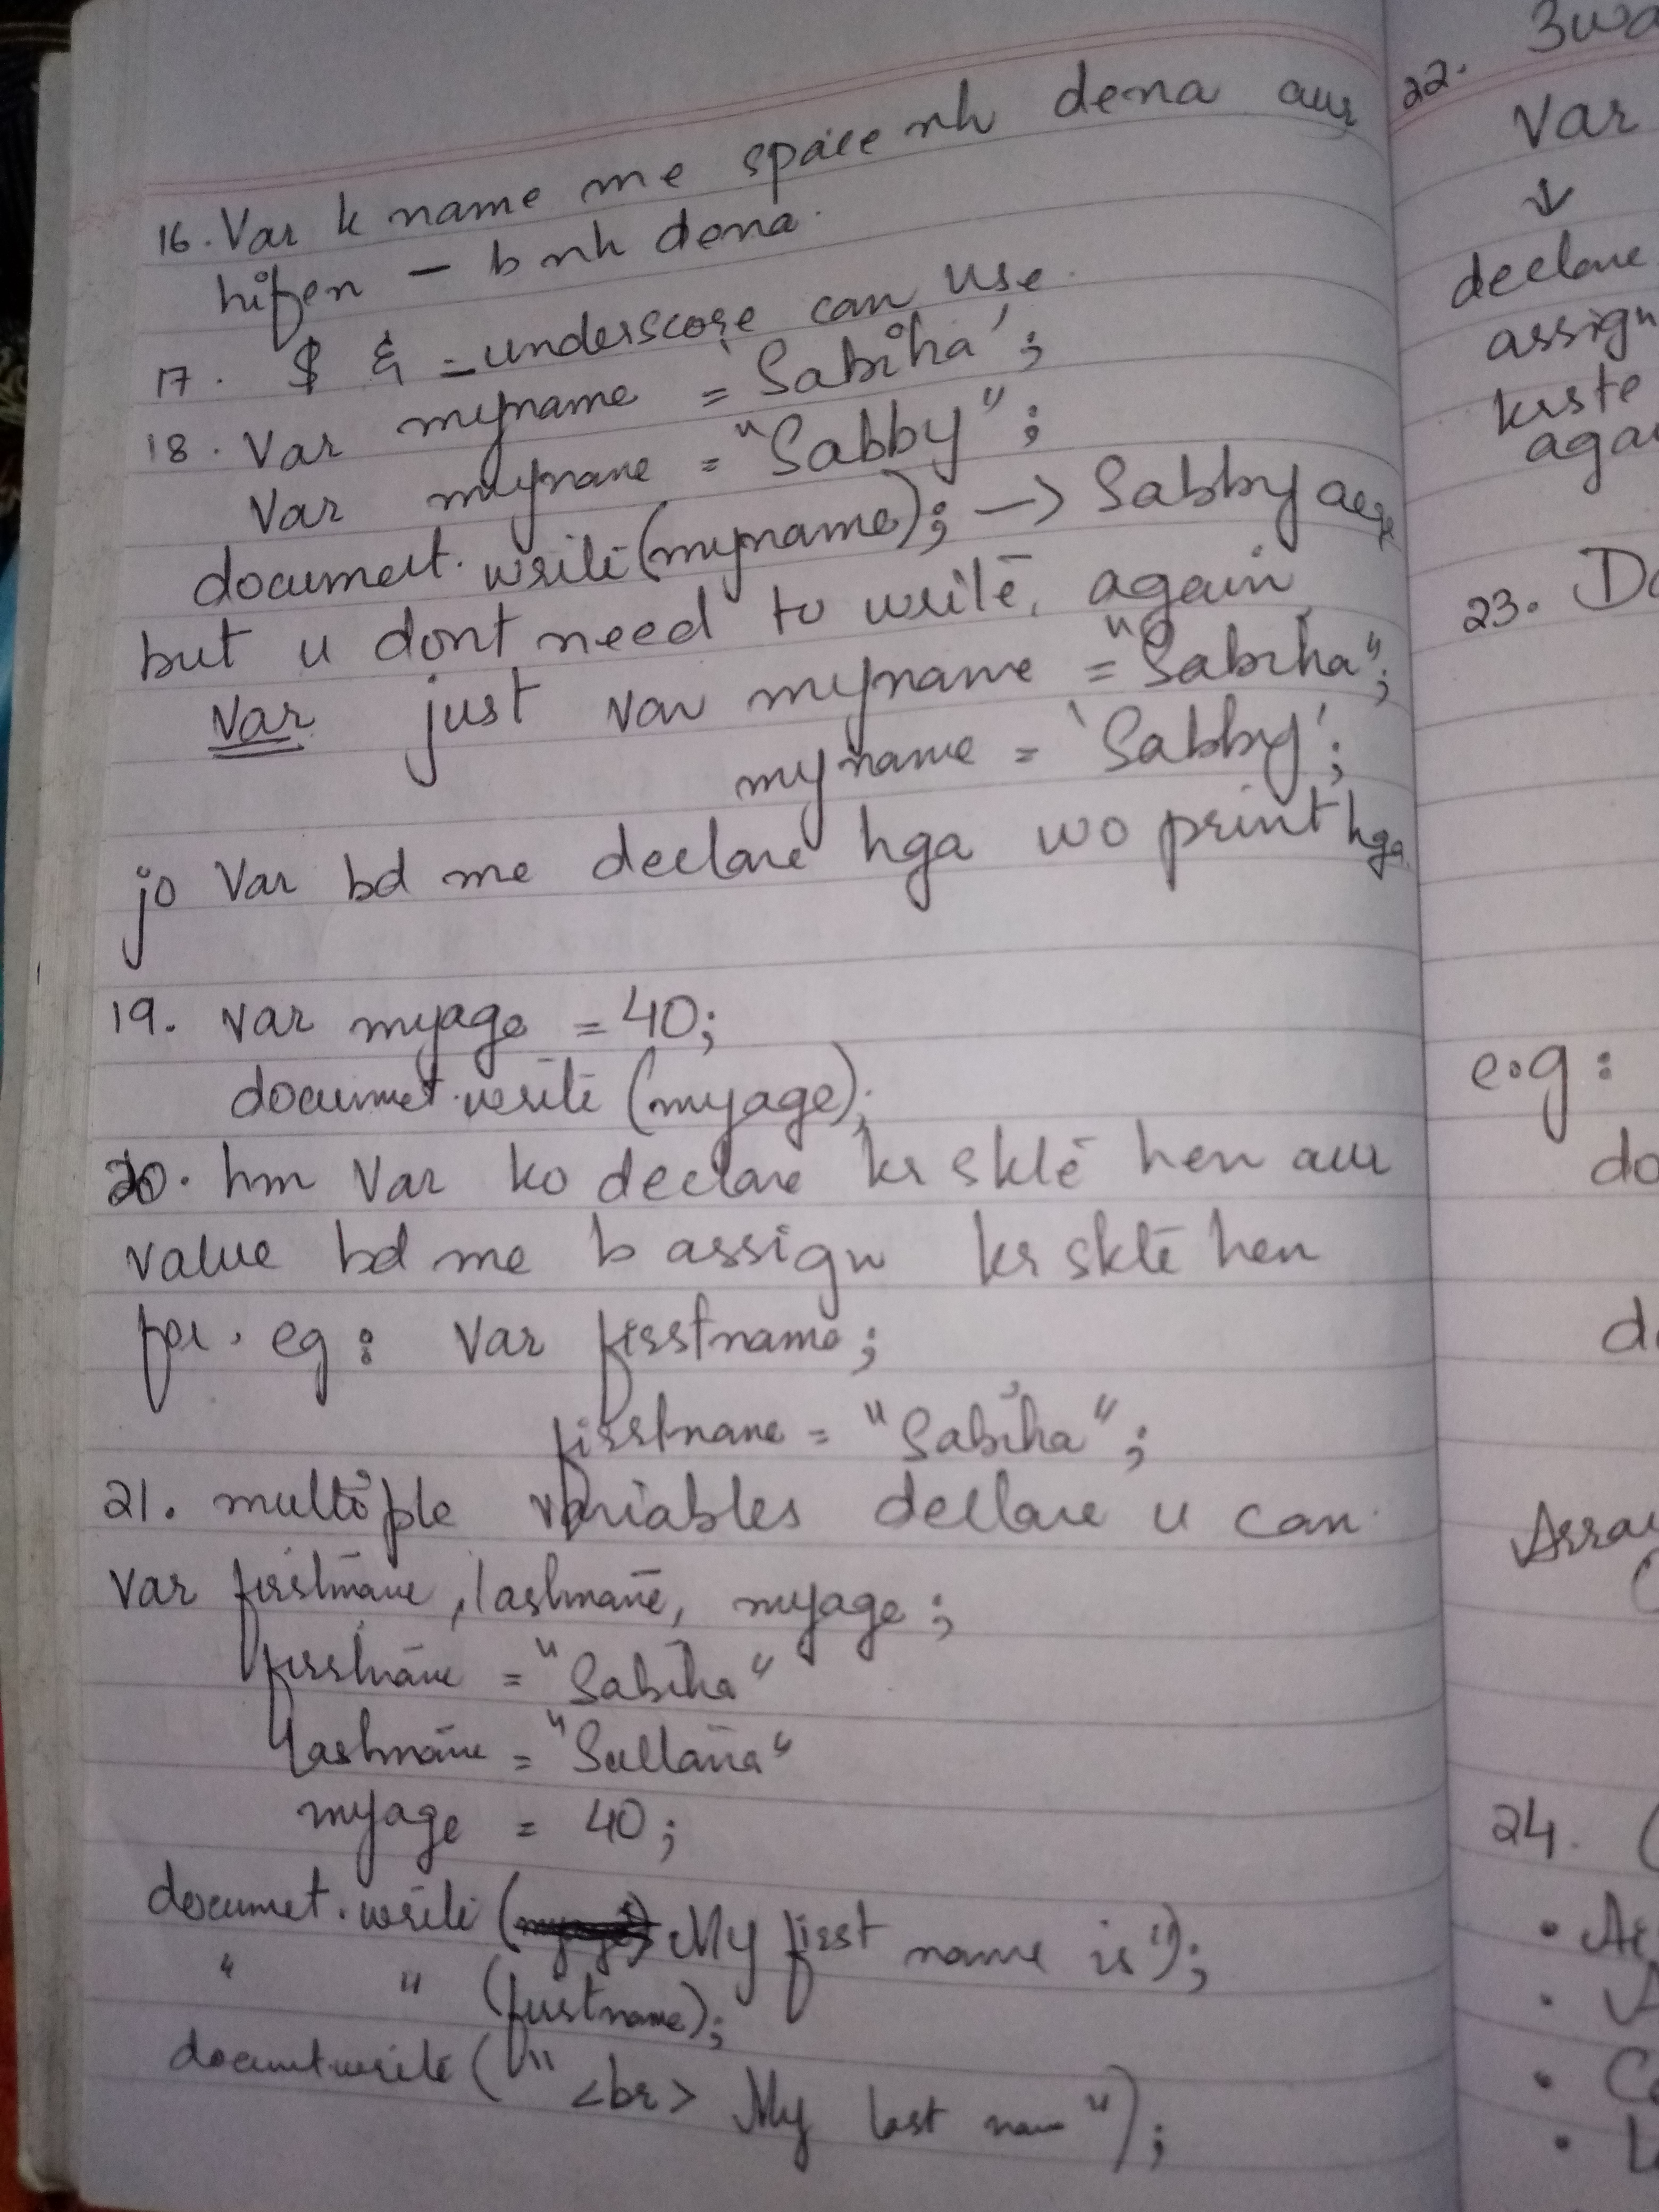 16. Var k name me space nh dena aur
hifen – b nh dena.
17. $ & _ underscore can use.
18. Var myname = 'Sabiha';
Var myname = "Sabby";
document.write(myname); -> Sabby aege
but u dont need to write, again
Var just var myname = "Sabiha";
myname = 'Sabby';
jo Var bd me declare hga wo print hga.
19. Var myage = 40;
documet.write (myage);
20. hm Var ko declare kr skte hen aur
value bd me b assign kr skte hen
for. eg: Var firstname;
firstname = "Sabiha";
21. multiple variables declare u can.
Var firstname, lastname, myage;
firstname = "Sabiha"
lastname = "Sultana"
myage = 40;
documet.write ( My first name is");
" " (firstname);
documtwrite (" <br> My last nam");
22. 3wa
Var
↓
declare
assign
krste
aga
23. Da
e.g:
do
d
Arra
(
24. (
• Ar
• A
• Co
• L